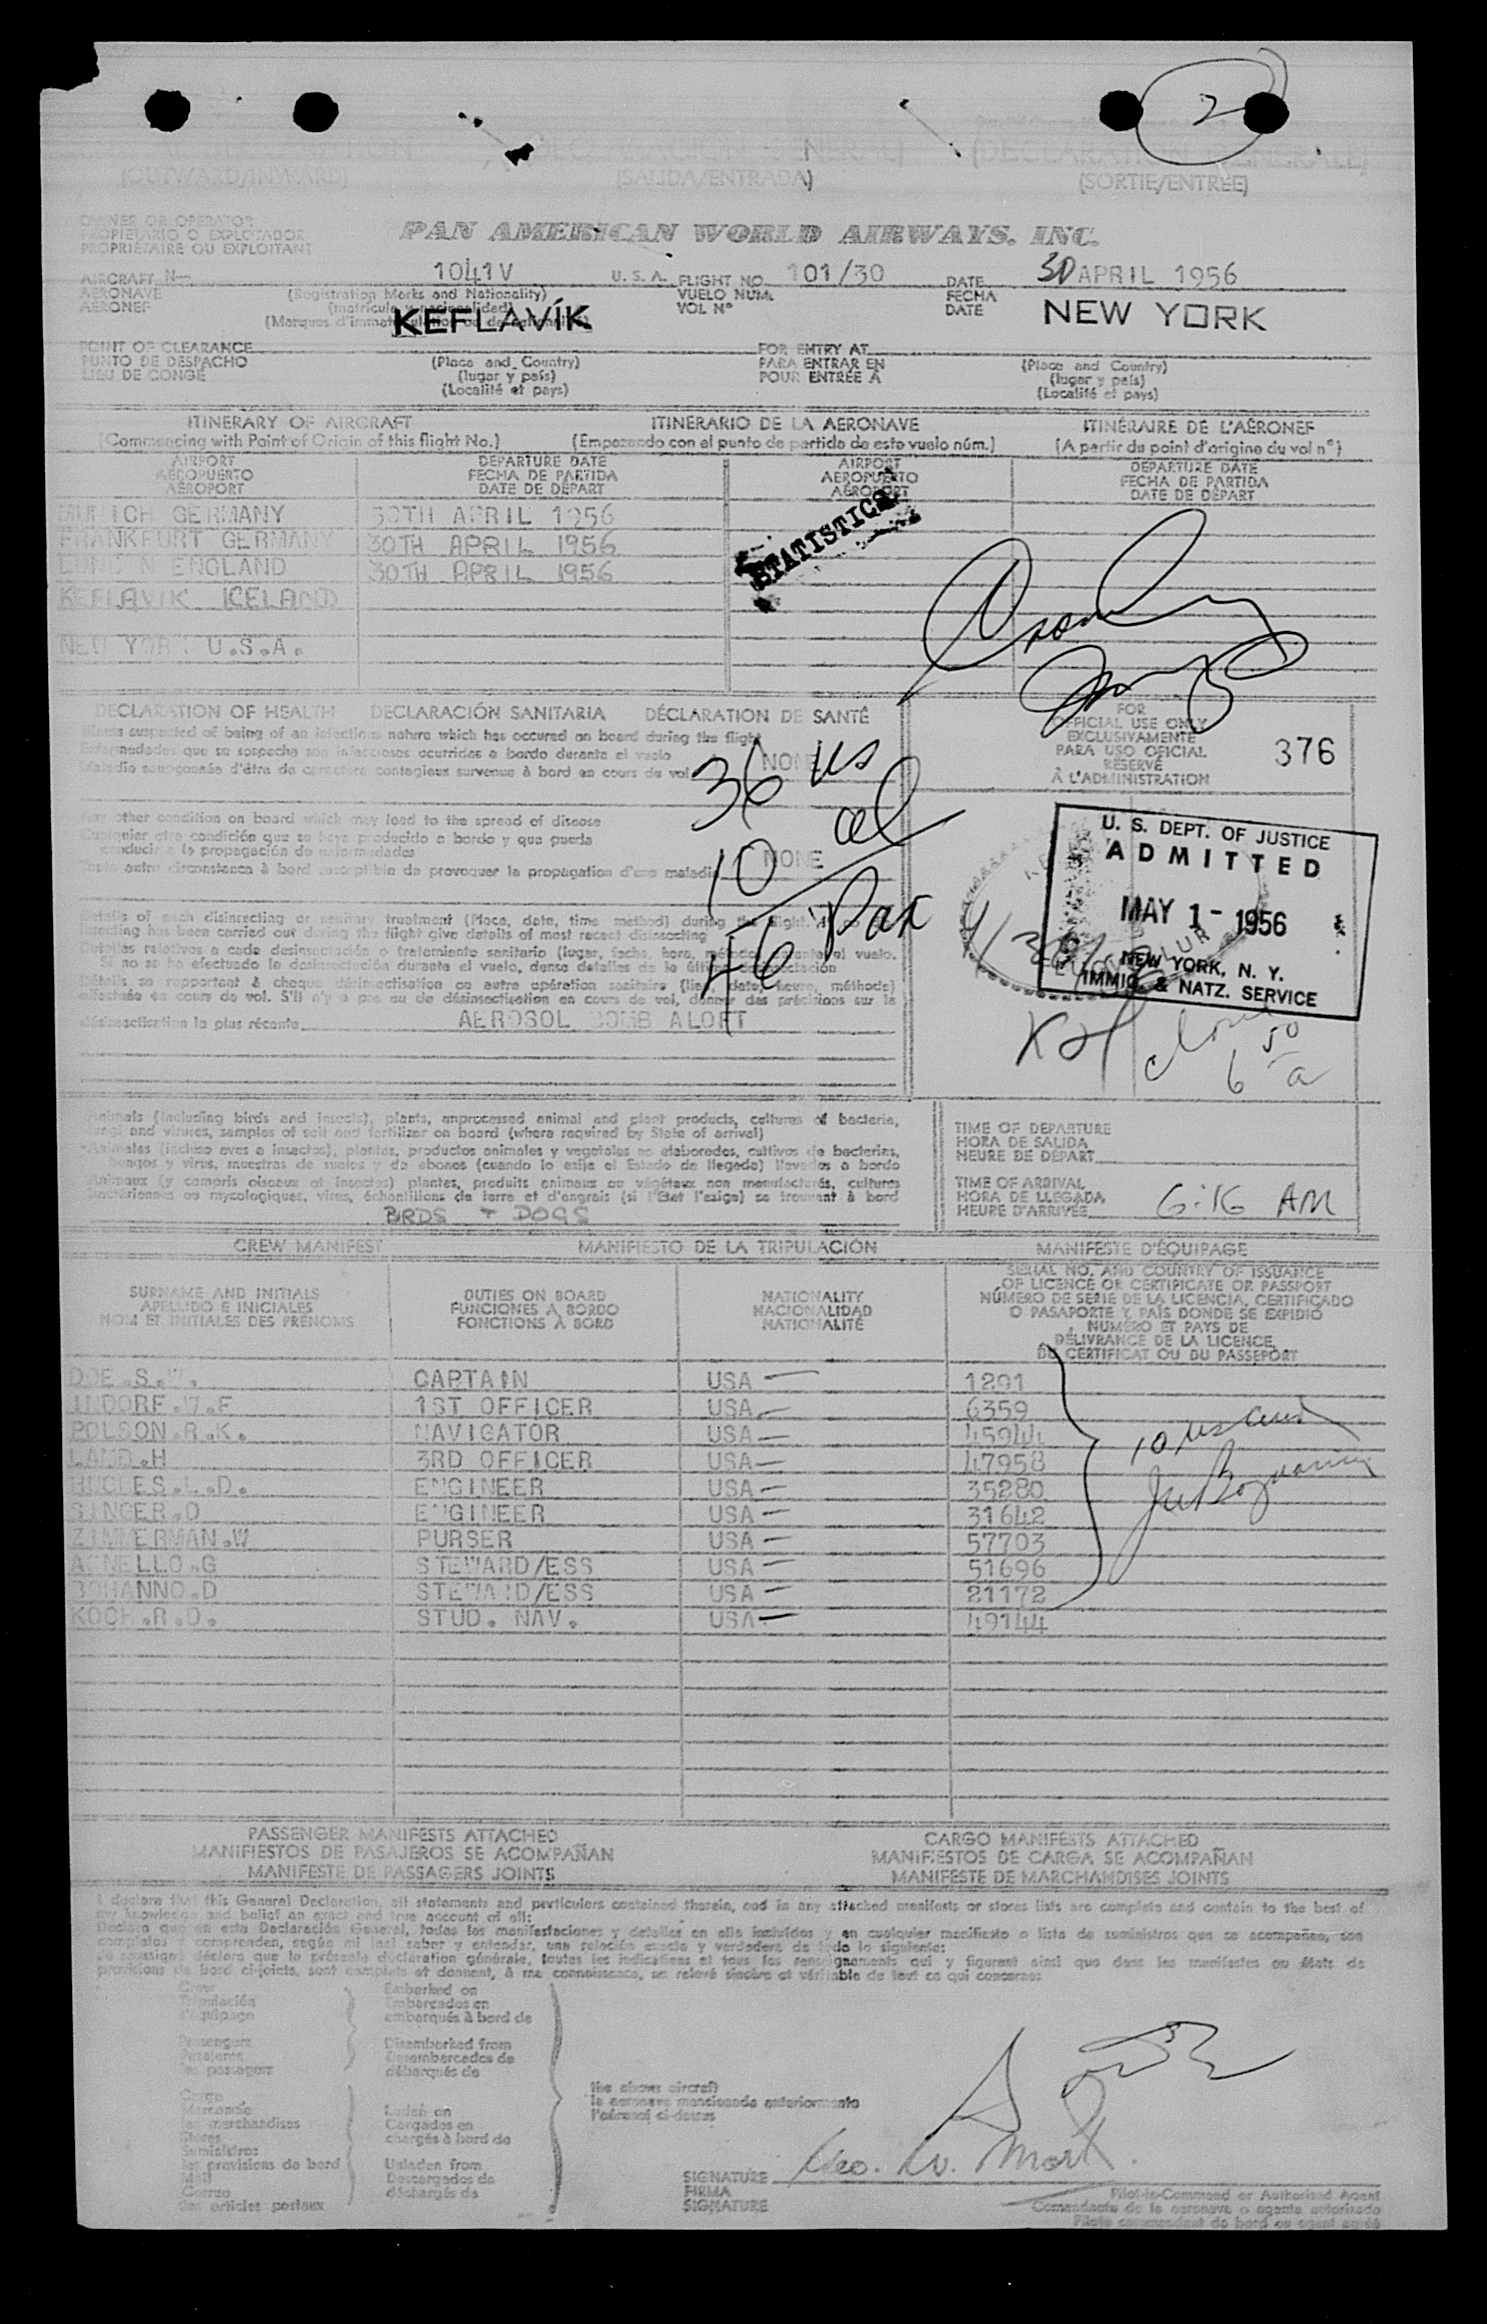 2
(OUTWARD/INWARD) (SALIDA/ENTRADA) (SORTIE/ENTRÉE)
OWNER OR OPERATOR
PROPIETARIO O EXPLOTADOR
PROPRIÉTAIRE OU EXPLOITANT
PAN AMERICAN WORLD AIRWAYS, INC.
AIRCRAFT N— 1041V U. S. A. FLIGHT NO. 101/30 DATE 30 APRIL 1956
AERONAVE (Registration Marks and Nationality) VUELO NUM. FECHA
AERONEF (matrícula y nacionalidad) VOL Nº DATE
(Marques d'immatriculation et de nationalité)
KEFLAVÍK NEW YORK
POINT OF CLEARANCE FOR ENTRY AT
PUNTO DE DESPACHO (Place and Country) PARA ENTRAR EN (Place and Country)
LIEU DE CONGÉ (lugar y país) POUR ENTRÉE À (lugar y país)
(Localité et pays) (Localité et pays)
ITINERARY OF AIRCRAFT ITINERARIO DE LA AERONAVE ITINÉRAIRE DE L'AÉRONEF
(Commencing with Point of Origin of this flight No.) (Empezando con el punto de partida de este vuelo núm.) (A partir du point d'origine du vol nº)
AIRPORT DEPARTURE DATE AIRPORT DEPARTURE DATE
AEROPUERTO FECHA DE PARTIDA AEROPUERTO FECHA DE PARTIDA
AÉROPORT DATE DE DÉPART AÉROPORT DATE DE DÉPART
MUNICH GERMANY 30TH APRIL 1956
FRANKFURT GERMANY 30TH APRIL 1956
LONDON ENGLAND 30TH APRIL 1956
KEFLAVIK ICELAND
NEW YORK U.S.A.
STATISTICS
DECLARATION OF HEALTH DECLARACIÓN SANITARIA DÉCLARATION DE SANTÉ
Illness suspected of being of an infectious nature which has occured on board during the flight
Enfermedades que se sospecha son infecciosas ocurridas a bordo durante el vuelo
Maladie soupçonnée d'être de caractère contagieux survenue à bord en cours de vol NONE
36 us
10 al
46 Pax
FOR
OFFICIAL USE ONLY
EXCLUSIVAMENTE
PARA USO OFICIAL
RÉSERVÉ
À L'ADMINISTRATION
376
Any other condition on board which may lead to the spread of disease
Cualquier otra condición que se haya producido a bordo y que pueda
conducir a la propagación de enfermedades
Toute autre circonstance à bord susceptible de provoquer la propagation d'une maladie NONE
U. S. DEPT. OF JUSTICE
ADMITTED
MAY 1 - 1956
NEW YORK, N. Y.
IMMIG. & NATZ. SERVICE
Details of each disinsecting or sanitary treatment (Place, date, time method) during the flight.
secting has been carried out during the flight give details of most recent disinsecting
Detalles relativos a cada desinsectación o tratamiento sanitario (lugar, fecha, hora, método) durante el vuelo.
Si no se ha efectuado la desinsectación durante el vuelo, dense detalles de la última desinsectación
Détails se rapportant à chaque désinsectisation ou autre opération sanitaire (lieu, date, heure, méthode)
effectuée en cours de vol. S'il n'y a pas eu de désinsectisation en cours de vol, donner des précisions sur la
désinsectisation la plus récente AEROSOL BOMB ALOFT
6 50 a
Animals (including birds and insects), plants, unprocessed animal and plant products, cultures of bacteria,
fungi and viruses, samples of soil and fertilizer on board (where required by State of arrival)
Animales (incluso aves e insectos), plantas, productos animales y vegetales no elaborados, cultivos de bacterias,
hongos y virus, muestras de suelos y de abonos (cuando lo exija el Estado de llegada) llevados a bordo
Animaux (y compris oiseaux et insectes) plantes, produits animaux ou végétaux non manufacturés, cultures
bactériennes ou mycologiques, virus, échantillons de terre et d'engrais (si l'État l'exige) se trouvant à bord
BIRDS + DOGS
TIME OF DEPARTURE
HORA DE SALIDA
HEURE DE DÉPART
TIME OF ARRIVAL
HORA DE LLEGADA
HEURE D'ARRIVÉE 6:16 AM
CREW MANIFEST MANIFIESTO DE LA TRIPULACIÓN MANIFESTE D'ÉQUIPAGE
SURNAME AND INITIALS
APELLIDO E INICIALES
NOM ET INITIALES DES PRÉNOMS
DUTIES ON BOARD
FUNCIONES A BORDO
FONCTIONS À BORD
NATIONALITY
NACIONALIDAD
NATIONALITÉ
SERIAL NO. AND COUNTRY OF ISSUANCE
OF LICENCE OR CERTIFICATE OR PASSPORT
NÚMERO DE SERIE DE LA LICENCIA, CERTIFICADO
O PASAPORTE Y PAÍS DONDE SE EXPIDIÓ
NUMÉRO ET PAYS DE
DÉLIVRANCE DE LA LICENCE,
DU CERTIFICAT OU DU PASSEPORT
DOE.S.W. CAPTAIN USA 1291
JNDORF.W.E 1ST OFFICER USA 6359
POLSON.R.K. NAVIGATOR USA 45944
LAMB.H 3RD OFFICER USA 47958
HUGLES.L.D. ENGINEER USA 35280
SINGER.O ENGINEER USA 31642
ZIMMERMAN.W PURSER USA 57703
AGNELLO.G STEWARD/ESS USA 51696
BOHANNO.D STEWARD/ESS USA 21172
KOCH.R.O. STUD. NAV. USA 49144
10 us
PASSENGER MANIFESTS ATTACHED CARGO MANIFESTS ATTACHED
MANIFIESTOS DE PASAJEROS SE ACOMPAÑAN MANIFIESTOS DE CARGA SE ACOMPAÑAN
MANIFESTE DE PASSAGERS JOINTS MANIFESTE DE MARCHANDISES JOINTS
I declare that this General Declaration, all statements and particulars contained therein, and in any attached manifests or stores lists are complete and contain to the best of
my knowledge and belief an exact and true account of all:
Declaro que en esta Declaración General, todas las manifestaciones y detalles en ella incluidos y en cualquier manifiesto o lista de suministros que se acompañen, son
completos y comprenden, según mi leal saber y entender, una relación exacta y verdadera de todo lo siguiente:
Je soussigné déclare que la présente déclaration générale, toutes les indications et tous les renseignements qui y figurent ainsi que dans les manifestes ou états de
provisions de bord ci-joints, sont complets et donnent, à ma connaissance, un relevé sincère et véritable de tout ce qui concerne:
Crew Embarked on
Tripulación Embarcados en
l'équipage embarqués à bord de
Passengers Disembarked from
Pasajeros Desembarcados de
les passagers débarqués de
the above aircraft
la aeronave mencionada anteriormente
l'aéronef ci-dessus
Cargo
Mercancía Laden on
les marchandises Cargados en
Stores chargés à bord de
Suministros
les provisions de bord Unladen from
Mail Descargados de
Correo déchargés de
des articles postaux
SIGNATURE Geo. W. Mort.
FIRMA Pilot-in-Command or Authorized Agent
SIGNATURE Comandante de la aeronave o agente autorizado
Pilote commandant de bord ou agent agréé